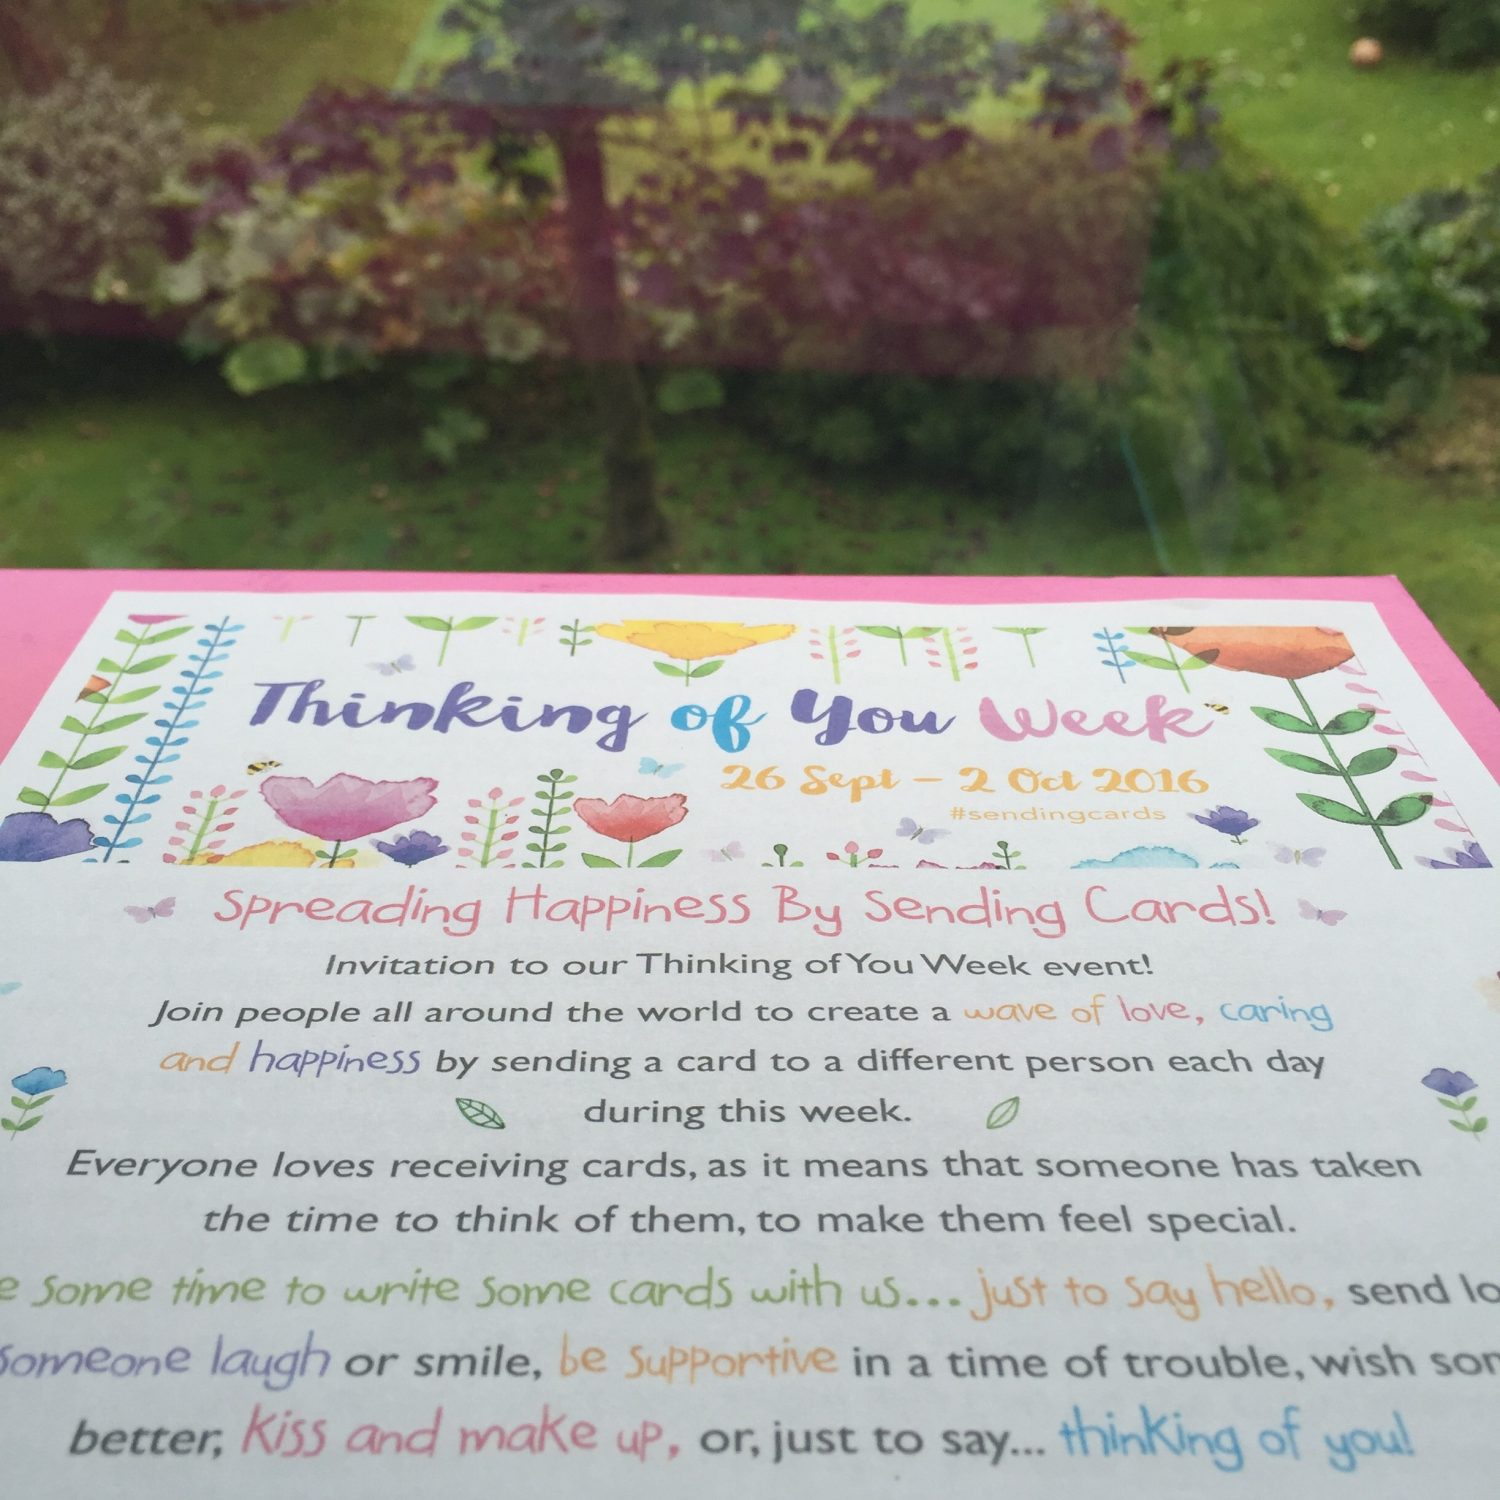 Thinking of You Week
26 Sept – 2 Oct 2016
#sendingcards
Spreading Happiness By Sending Cards!
Invitation to our Thinking of You Week event!
Join people all around the world to create a wave of love, caring
and happiness by sending a card to a different person each day
during this week.
Everyone loves receiving cards, as it means that someone has taken
the time to think of them, to make them feel special.
some time to write some cards with us... just to say hello, send
someone laugh or smile, be supportive in a time of trouble, wish
better, kiss and make up, or, just to say... thinking of you!